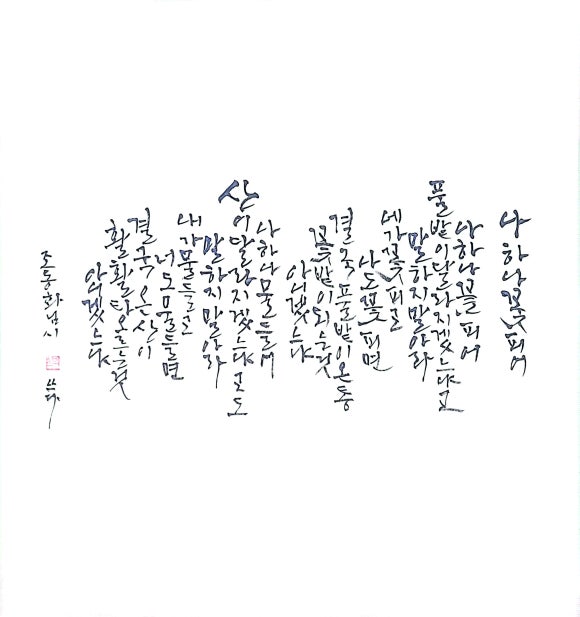 나 하나 꽃 피어
나 하나 꽃 피어
풀밭이 달라지겠느냐고
말하지 말아라
네가 꽃 피고
나도 꽃 피면
결국 풀밭이 온통
꽃밭이 되는 것
아니겠느냐
나 하나 물들어
산이 달라지겠느냐고도
말하지 말아라
내가 물들고
너도 물들면
결국 온 산이
활활 타오르는 것
아니겠느냐
조동화님 시